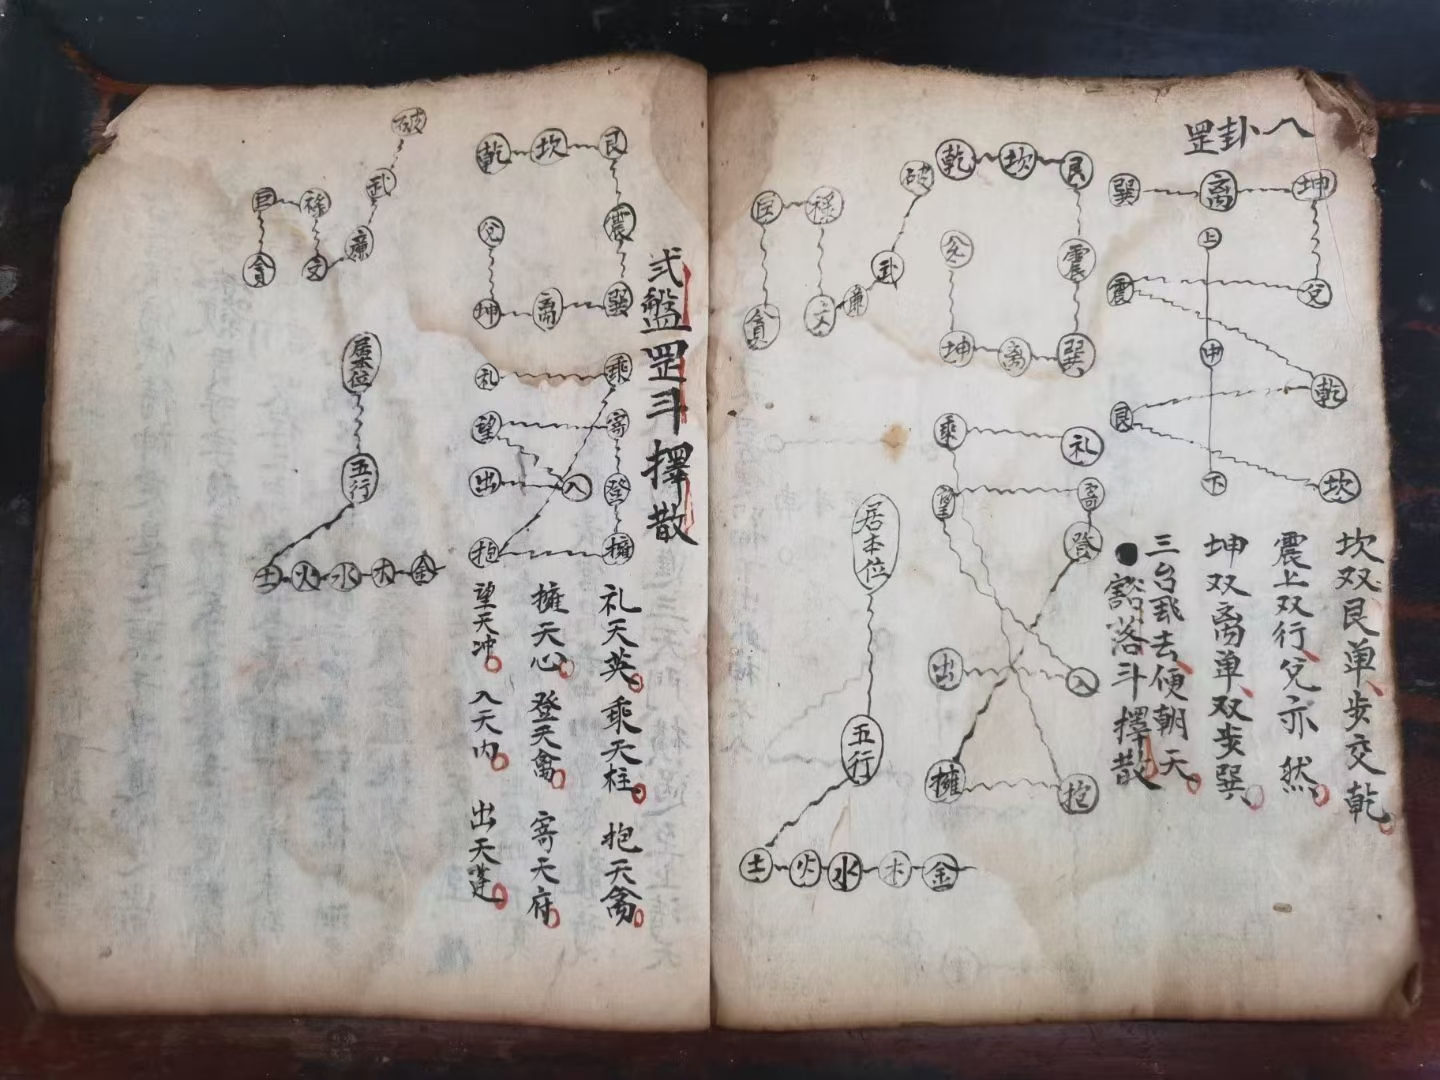 八卦罡
巽 离 坤
上
震 兌
中
艮 乾
下 坎
坎双艮单步交乾
震上双行兌亦然
坤双离单双步巽
三台罡去便朝天
豁落斗擇散
乾 坎 艮
兊 震
坤 离 巽
乘 礼
望 寄
登
出 入
擁 抱
破
巨 祿
武
貪 文 廉
居本位
五行
土 火 水 木 金
弍盤罡斗擇散
乾 坎 艮
兊 震
坤 离 巽
礼 乘
望 寄
出 入 登
抱 擁
礼天英 乘天柱 抱天禽
擁天心 登天禽 寄天府
望天冲 入天内 出天蓬
破
巨 祿 武
貪 文 廉
居本位
五行
土 火 水 木 金